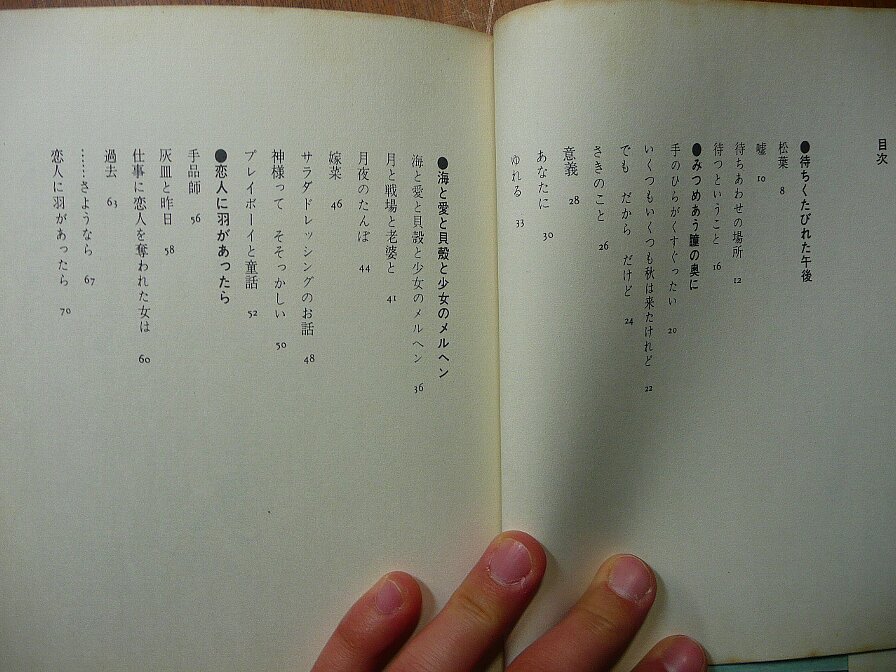 目次
●待ちくたびれた午後
松葉 8
嘘 10
待ちあわせの場所 12
待つということ 16
●みつめあう瞳の奥に
手のひらがくすぐったい 20
いくつもいくつも秋は来たけれど 22
でも だから だけど 24
さきのこと 26
意義 28
あなたに 30
ゆれる 33
●海と愛と貝殻と少女のメルヘン
海と愛と貝殻と少女のメルヘン 36
月と戦場と老婆と 41
月夜のたんぼ 44
嫁菜 46
サラダドレッシングのお話 48
神様って そそっかしい 50
プレイボーイと童話 52
●恋人に羽があったら
手品師 56
灰皿と昨日 58
仕事に恋人を奪われた女は 60
過去 63
……さようなら 67
恋人に羽があったら 70